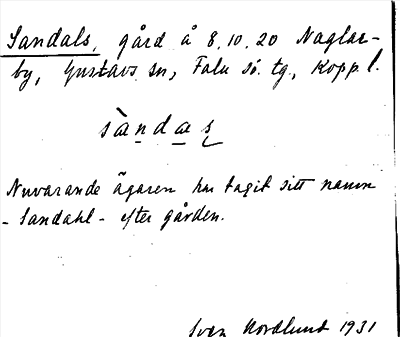 Sandals, gård å 8, 10, 20 Naglar-
by, Gustavs sn, Falu sö. tg., Kopp. l.
sàndas
Nuvarande ägaren har tagit sitt namn
- Sandahl - efter gården.
Sven Nordlund 1931